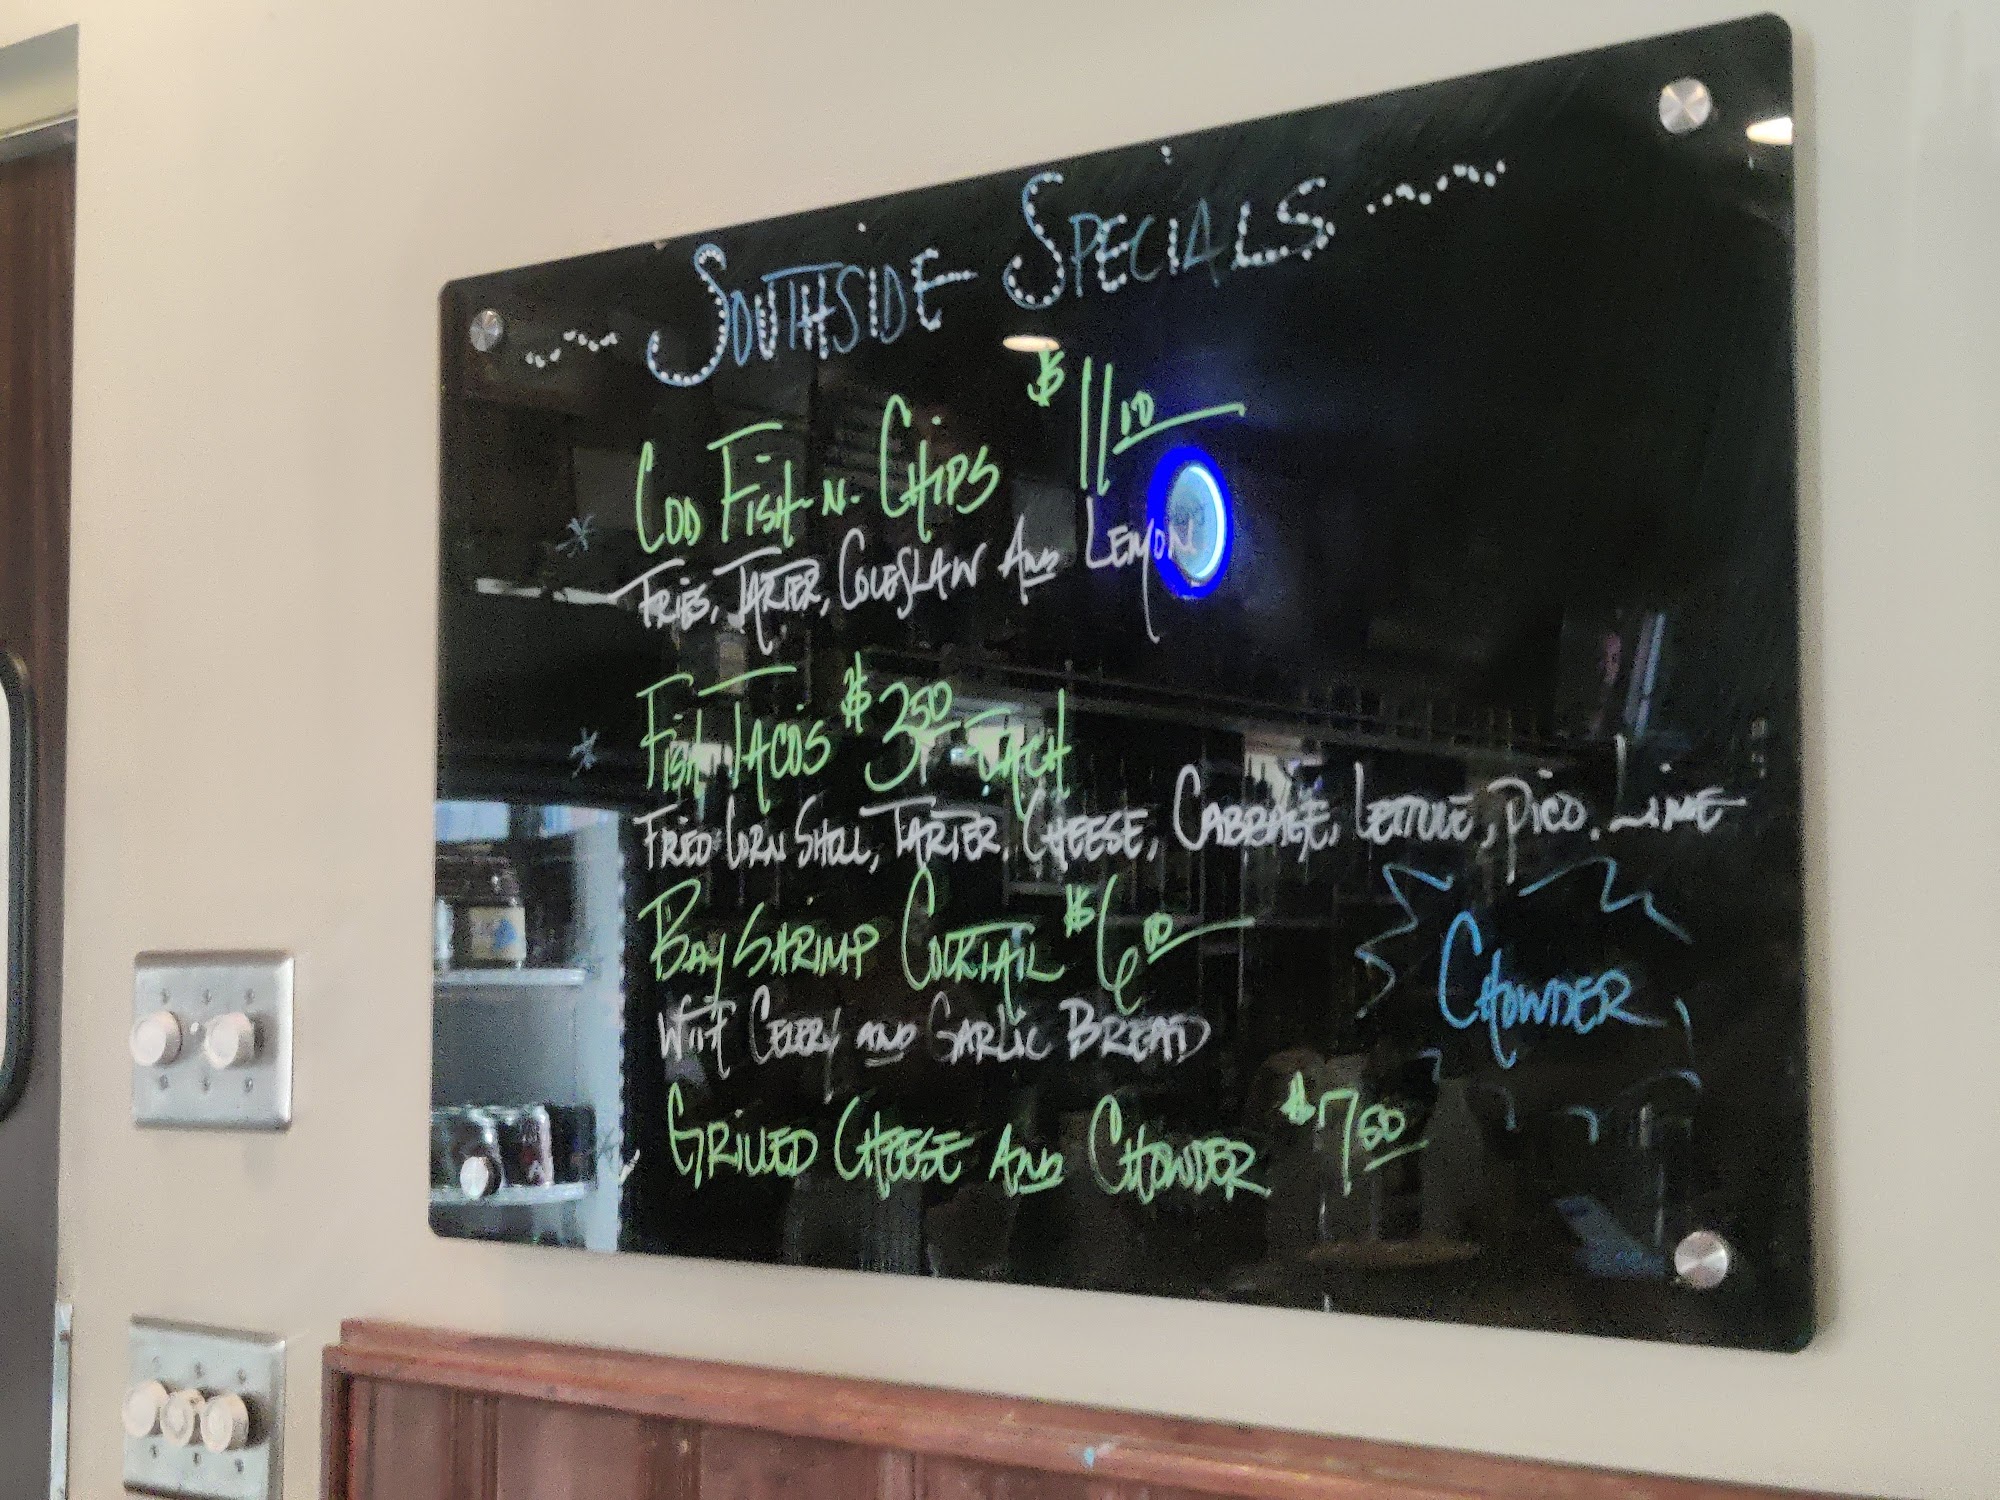 Southside Specials
Cod Fish-n-Chips $11.00
Fries, Tarter, Coleslaw and Lemon
Fish Tacos $3.50 Each
Fried Corn Shell, Tarter, Cheese, Cabbage, Lettuce, Pico, Lime
Bay Shrimp Cocktail $6.00
With Celery and Garlic Bread
Chowder
Grilled Cheese and Chowder $7.50